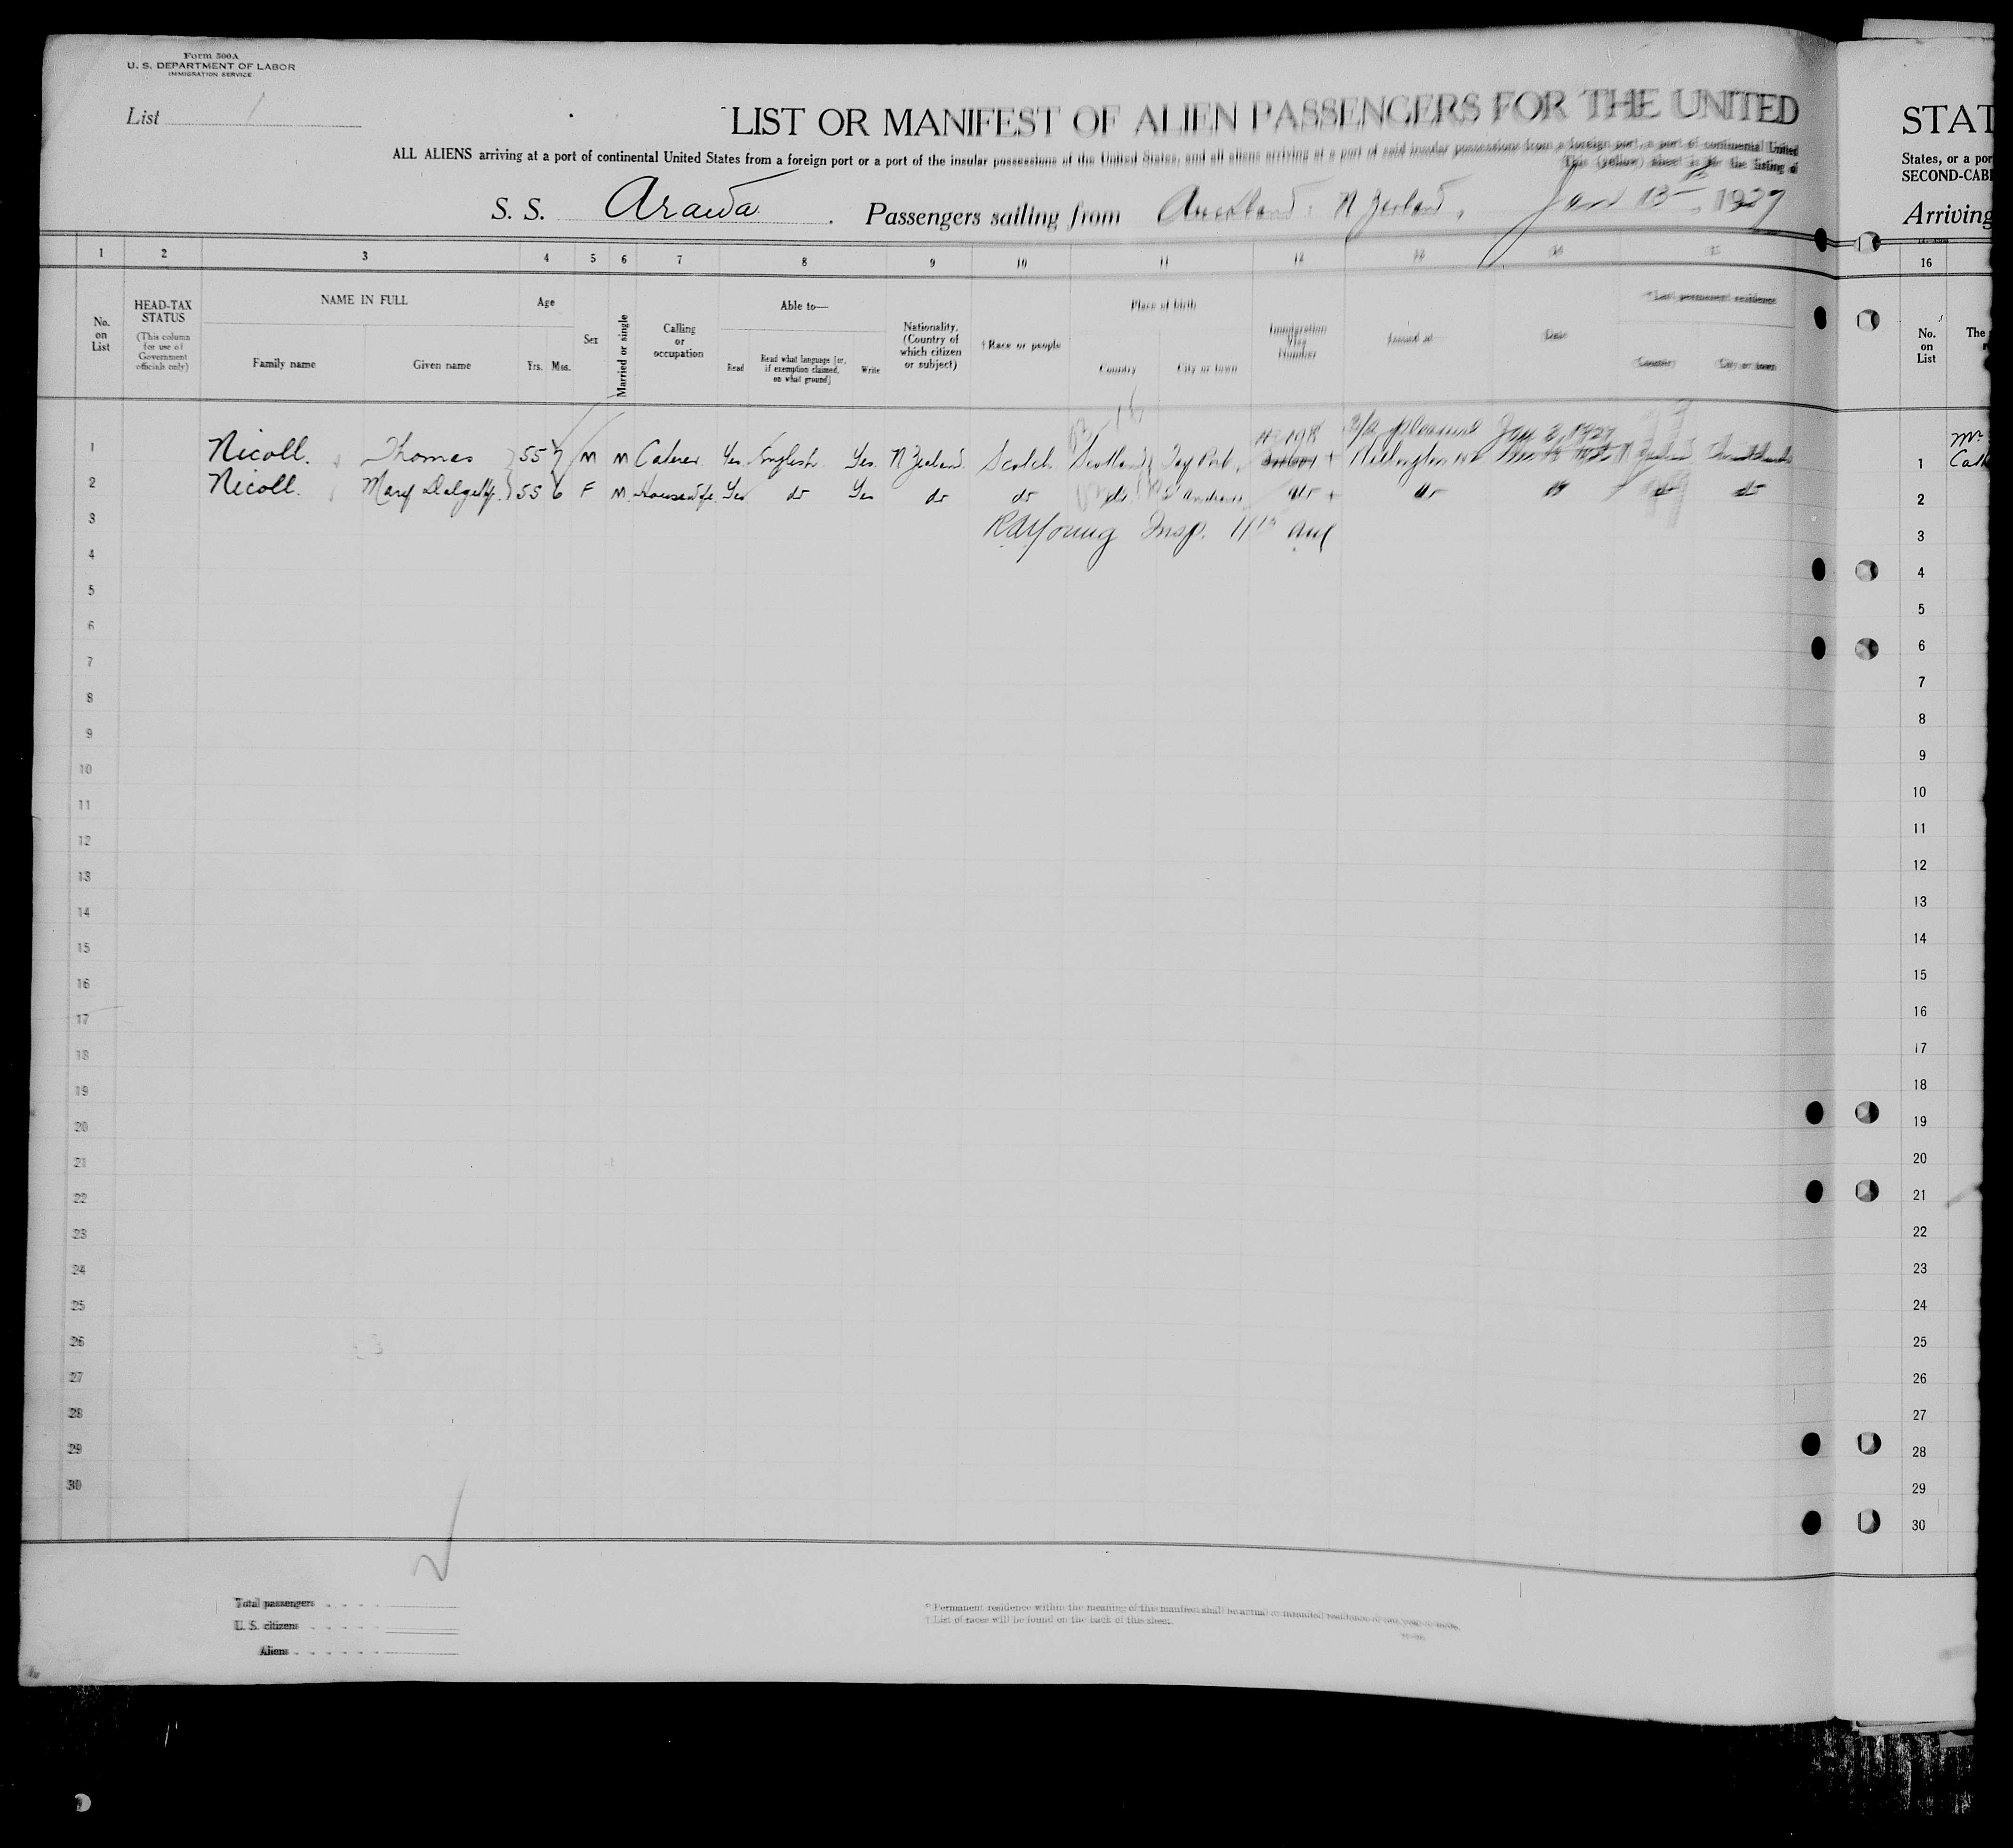 Form 500A
U. S. DEPARTMENT OF LABOR
IMMIGRATION SERVICE
List 1
LIST OR MANIFEST OF ALIEN PASSENGERS FOR THE UNITED
ALL ALIENS arriving at a port of continental United States from a foreign port or a port of the insular possessions of the United States, and all aliens arriving at a port of said insular possessions from a foreign port, a port of continental United
This (yellow) sheet is for the listing of
S. S. Arawa. Passengers sailing from Auckland. N Zealand, Jan 13th, 1927
1 2 3 4 5 6 7 8 9 10 11 12 13 14 15
No. on List
HEAD-TAX STATUS
(This column for use of Government officials only)
NAME IN FULL
Family name Given name
Age
Yrs. Mos.
Sex
Married or single
Calling or occupation
Able to—
Read Read what language [or, if exemption claimed, on what ground] Write
Nationality. (Country of which citizen or subject)
†Race or people
Place of birth
Country City or town
Immigration Visa Number
Issued at—
Date
*Last permanent residence
Country City or town
1 Nicoll. Thomas 55 7 M M Caterer. Yes English Yes. N Zealand. Scotch Scotland Tay Port Wellington
Jan 3, 1927
2 Nicoll. Mary Dalgetty. 55 6 F M. Housewife Yes do Yes do do do St Andrews do do do do do
3 Insp.
4
5
6
7
8
9
10
11
12
13
14
15
16
17
18
19
20
21
22
23
24
25
26
27
28
29
30
Total passengers
U. S. citizens
Aliens
* Permanent residence within the meaning of this manifest shall be actual or intended residence of one year or more.
† List of races will be found on the back of this sheet.
STAT
States, or a por
SECOND-CABI
Arriving
16
No. on List
The
1
2
3
4
5
6
7
8
9
10
11
12
13
14
15
16
17
18
19
20
21
22
23
24
25
26
27
28
29
30